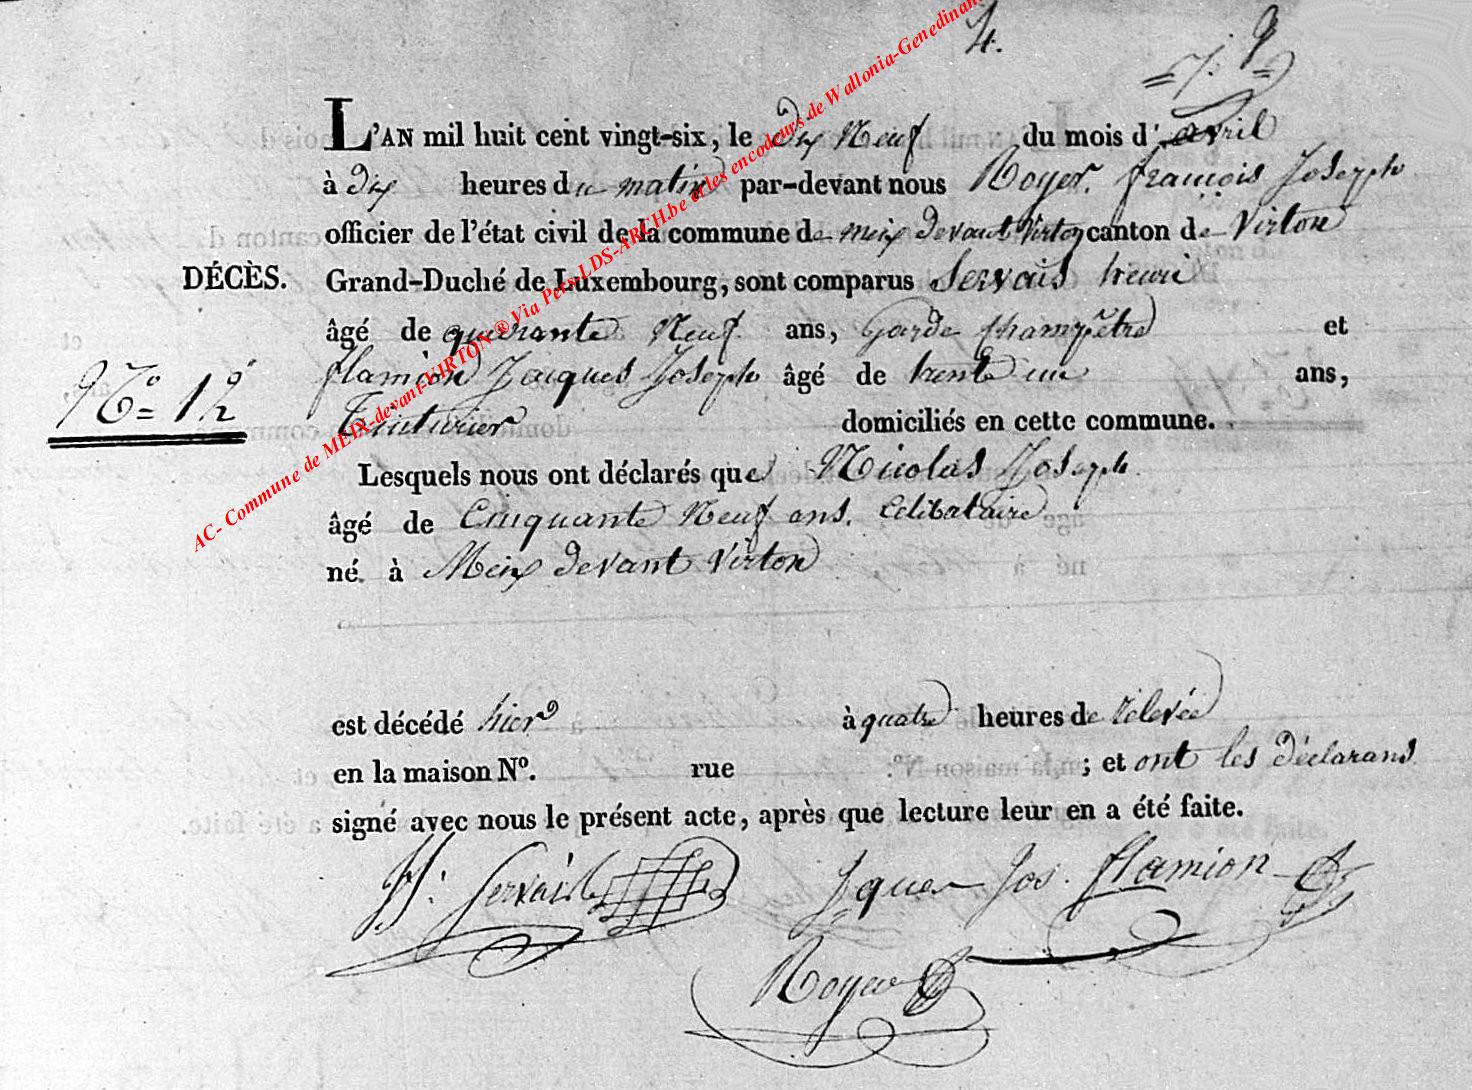 4.
L'AN mil huit cent vingt-six, le dix Neuf du mois d'avril
à dix heures du matin par-devant nous Royer. françois Joseph
officier de l'état civil de la commune de meix devant Virton canton de Virton
DÉCÈS. Grand-Duché de Luxembourg, sont comparus Servais henri
âgé de quarante Neuf ans, Garde champêtre et
Nº 12 flamion Jacques Joseph âgé de trente un ans,
Teinturier domiciliés en cette commune.
Lesquels nous ont déclarés que Nicolas Joseph
âgé de Cinquante Neuf ans. Célibataire
né à Meix devant Virton
est décédé hier à quatre heures de relevée
en la maison Nº. rue ; et ont les déclarans
signé avec nous le présent acte, après que lecture leur en a été faite.
H. Servais Jques Jos. flamion
Royer
AC- Commune de MEIX-devant-VIRTON ® Via Pers-LDS-ARCH.be et les encodeurs de Wallonia-Genedinan